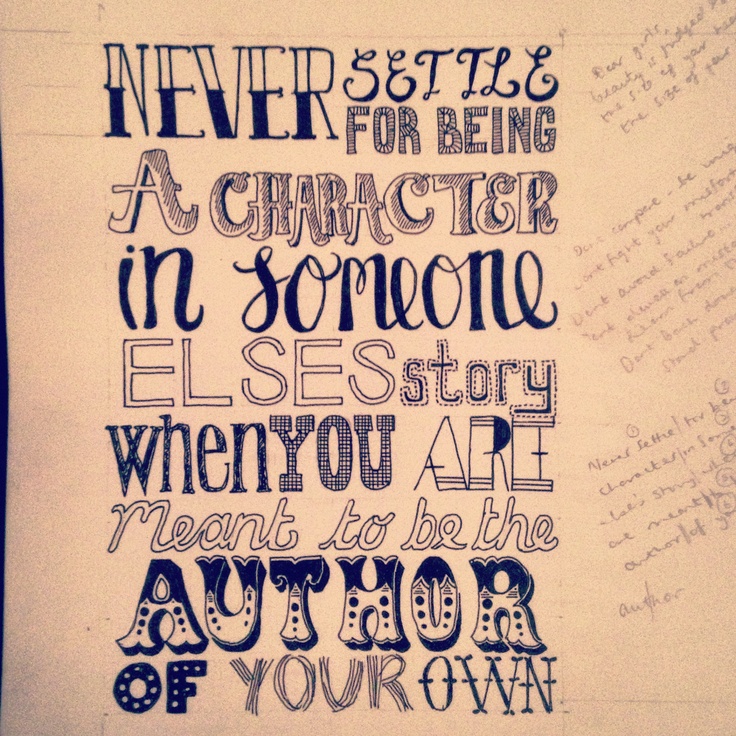 NEVER SETTLE
FOR BEING
A CHARACTER
in someone
ELSES story
when YOU ARE
Meant to be the
AUTHOR
OF YOUR OWN
Dear girls,
beauty is judged
the size of your
the size of your
Dont compare - be
Dont avoid failure
Dont back down
Stand
Never Settle/for
character/in Some
else's story/
are meant/
author/of
author